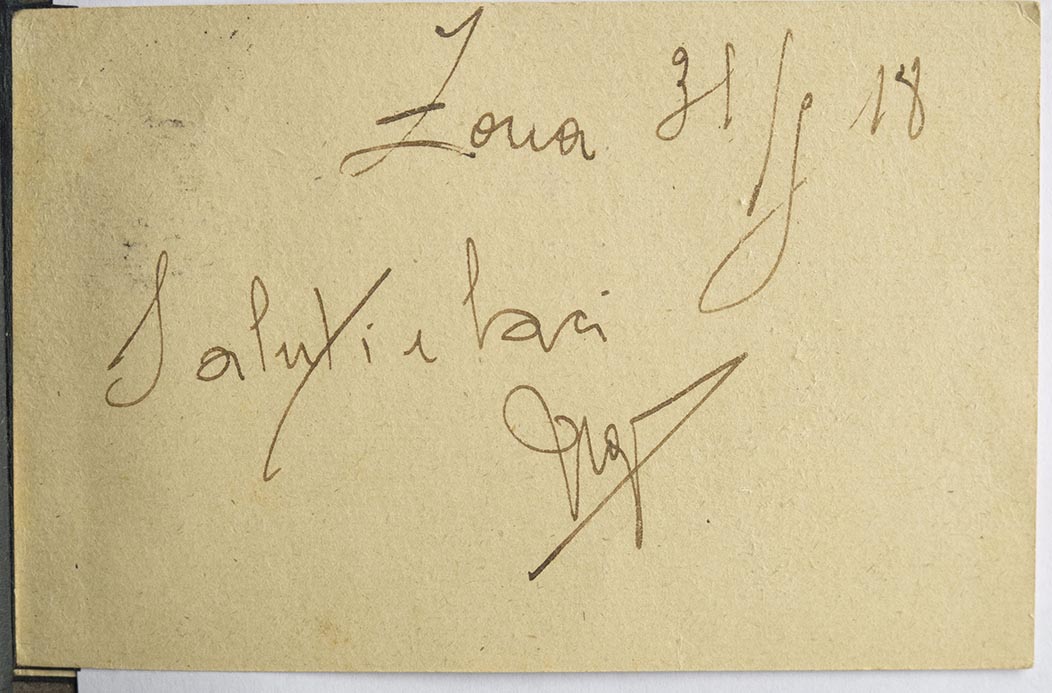 Zona 31/8 18
Saluti e baci